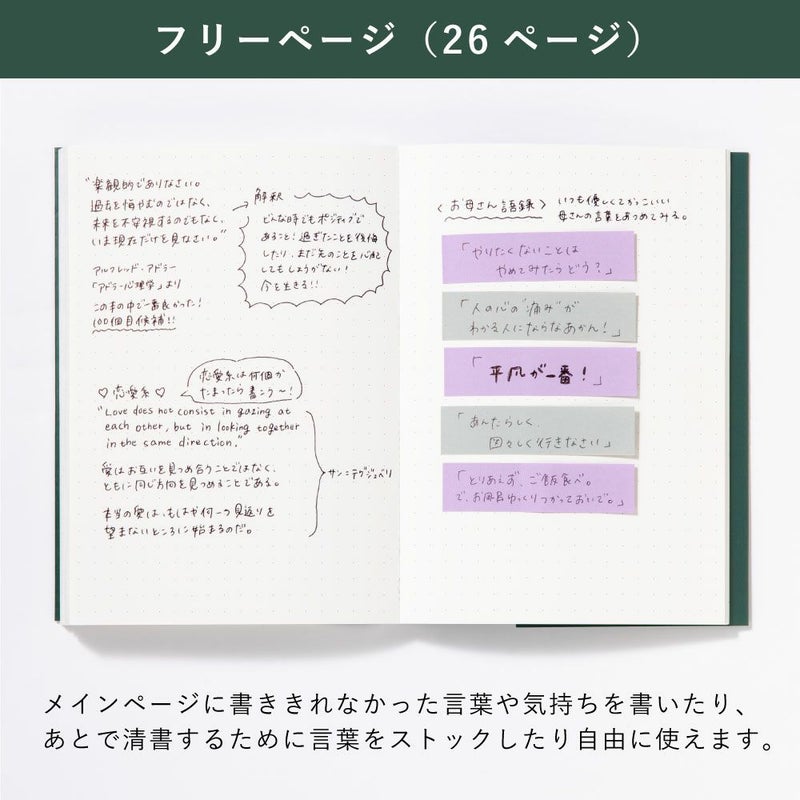 フリーページ（26ページ）
"楽観的でありなさい。
過去を悔やむのではなく、
未来を不安視するのでもなく、
いま現在だけを見なさい。"
アルフレッド・アドラー
「アドラー心理学」より
この本の中で一番良かった!
100個目候補!!
解釈
どんな時でもポジティブで
あること! 過ぎたことを後悔
したり、まだ先のことを心配
してもしょうがない!
今を生きる!!
♡恋愛系♡
恋愛系は何個か
たまったら書こう〜!
"Love does not consist in gazing at
each other, but in looking together
in the same direction."
愛はお互いを見つめ合うことではなく、
ともに同じ方向を見つめることである。
本当の愛は、もはや何一つ見返りを
望まないところに始まるのだ。
サン=テグジュペリ
〈お母さん語録〉
いつも優しくてかっこいい
母さんの言葉をあつめてみる。
「やりたくないことは
やめてみたらどう?」
「人の心の"痛み"が
わかる人にならなあかん!」
「平凡が一番!」
「あんたらしく、
図々しく行きなさい」
「とりあえず、ご飯食べ。
で、お風呂ゆっくりつかっておいで。」
メインページに書ききれなかった言葉や気持ちを書いたり、
あとで清書するために言葉をストックしたり自由に使えます。